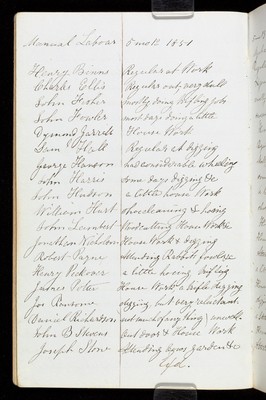 Manual Labour 5 mo 12 1851
Henry Binns Regular at Work
Charles Ellis Regular out, very dull
John Fisher mostly doing trifling jobs
John Fowler most days doing a little
Dymond Garrett House Work
Sam Hale Regular at digging
George Hanson has considerable wheeling
John Harris Some days digging &c
John Hudson a little house Work
William Hurt shoecleaning & hoeing
John Lambert Woodcutting House Work &c
Jonathan House Work & digging
Robert Payne attending Rabbits fowls &c
Henry Peckover a little hoeing trifling
James Potter House Work a trifle digging
Jos Ransome digging but very reluctant
Daniel Richardson not much of any thing
John B Stevens Out door & House Work
Joseph Stone attending pigs garden &c